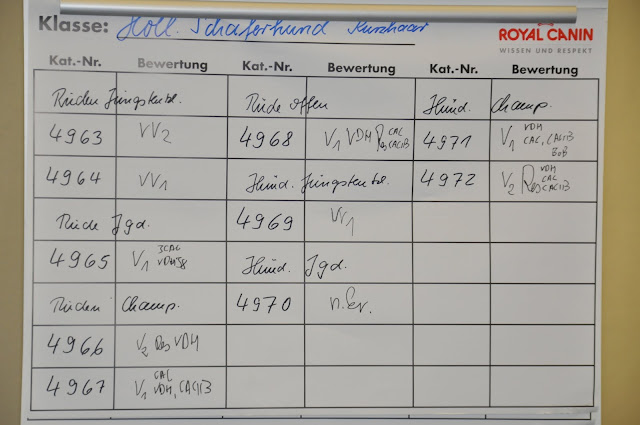 Klasse: Holl. Schäferhund Kurzhaar
ROYAL CANIN
WISSEN UND RESPEKT
Kat.-Nr. Bewertung Kat.-Nr. Bewertung Kat.-Nr. Bewertung
Rüden Jüngstenkl. Rüde Offen Hünd. Champ.
4963 VV2 4968 V1 VDH Res CAC CACIB 4971 V1 VDH CAC, CACIB BoB
4964 VV1 Hünd. Jüngstenkl. 4972 V2 Res VDH CAC CACIB
Rüde Jgd. 4969 VV1
4965 V1 JCAC Hünd. Jgd.
Rüden Champ. 4970 n. Er.
4966 V2 Res VDH
4967 V1 CAC VDH, CACIB